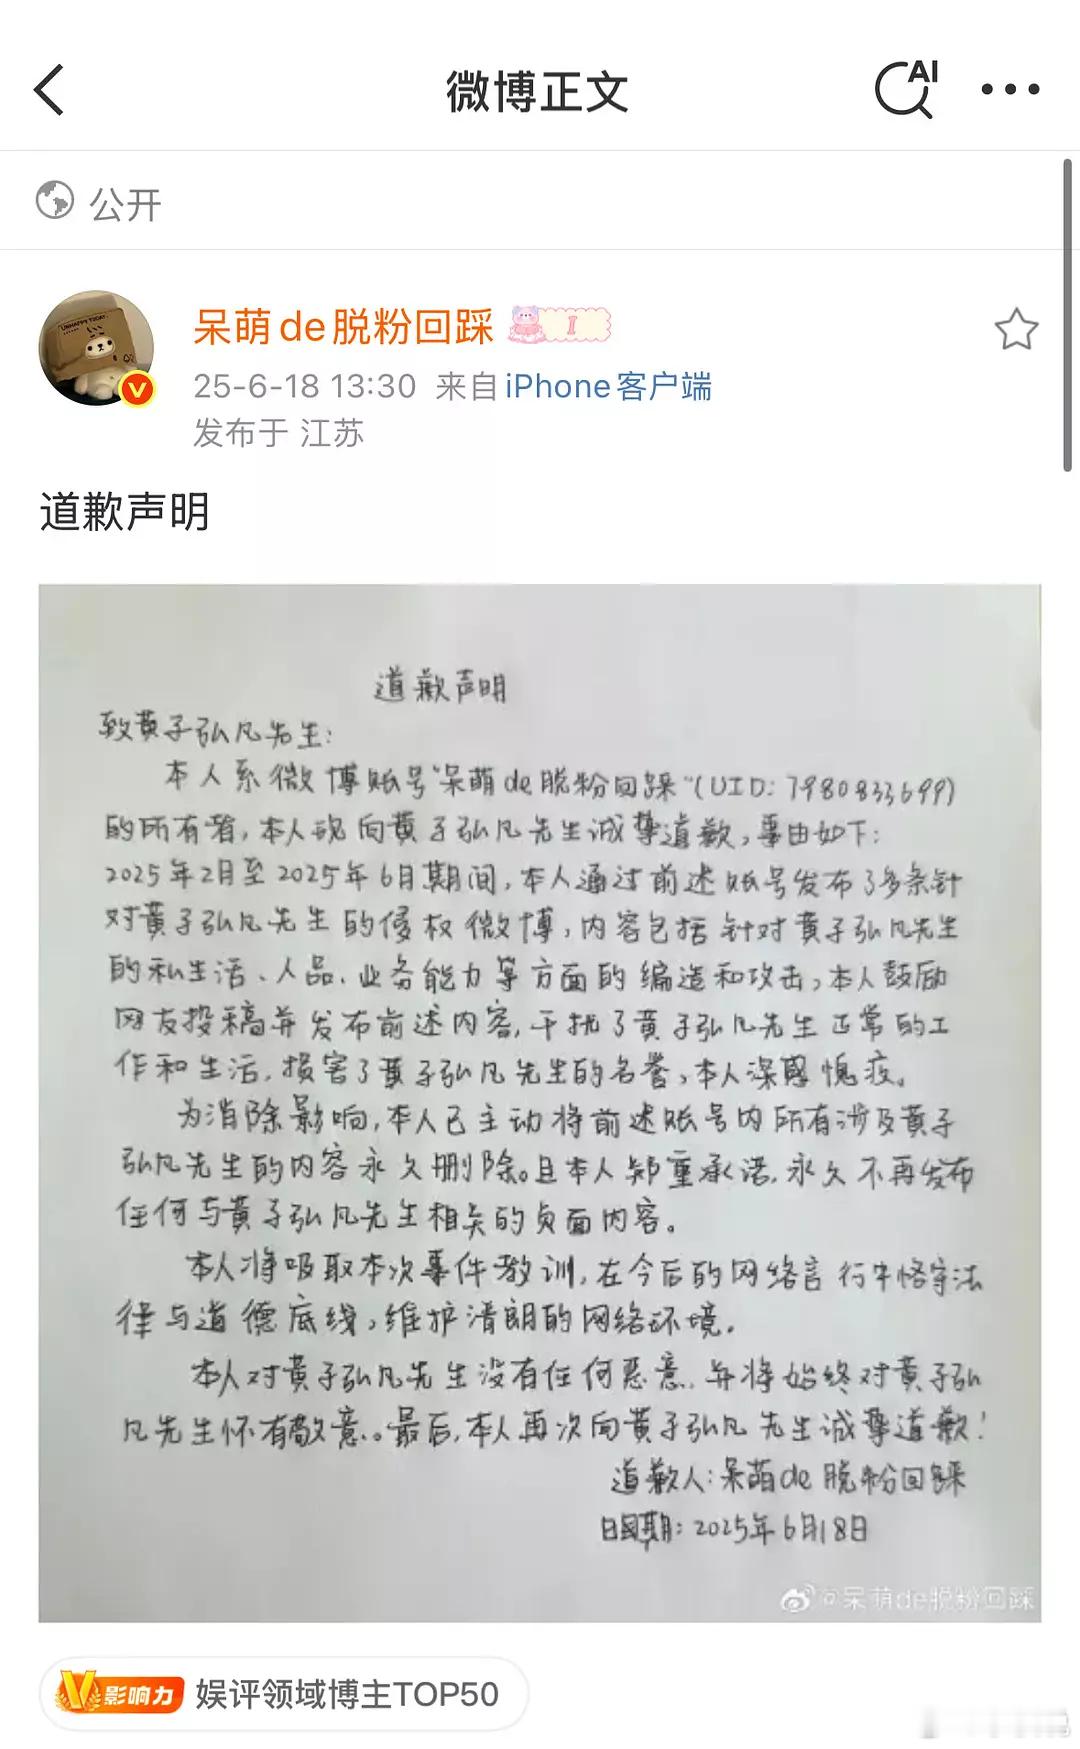 微博正文
AI
公开
呆萌de脱粉回踩
I
25-6-18 13:30 来自 iPhone客户端
发布于 江苏
道歉声明
道歉声明
致黄子弘凡先生:
本人系微博账号"呆萌de脱粉回踩"(UID:7980833699)
的所有者,本人现向黄子弘凡先生诚挚道歉,事由如下:
2025年2月至2025年6月期间,本人通过前述账号发布了多条针
对黄子弘凡先生的侵权微博,内容包括针对黄子弘凡先生
的私生活、人品、业务能力等方面的编造和攻击,本人鼓励
网友投稿并发布前述内容,干扰了黄子弘凡先生正常的工
作和生活,损害了黄子弘凡先生的名誉,本人深感愧疚。
为消除影响,本人已主动将前述账号内所有涉及黄子
弘凡先生的内容永久删除。且本人郑重承诺,永久不再发布
任何与黄子弘凡先生相关的负面内容。
本人将吸取本次事件教训,在今后的网络言行中恪守法
律与道德底线,维护清朗的网络环境。
本人对黄子弘凡先生没有任何恶意,并将始终对黄子弘
凡先生怀有敬意。最后,本人再次向黄子弘凡先生诚挚道歉!
道歉人:呆萌de脱粉回踩
日期:2025年6月18日
@呆萌de脱粉回踩
影响力 娱评领域博主TOP50